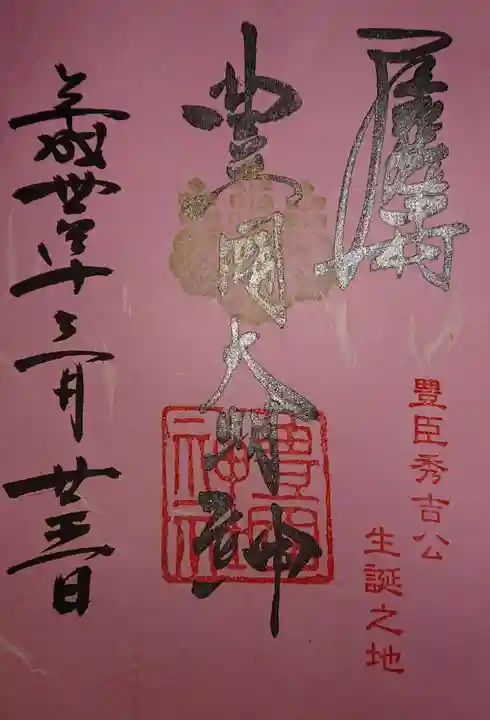 豊臣秀吉公
生誕之地
豊国大明神
豊国神社
平成丗年十二月廿三日